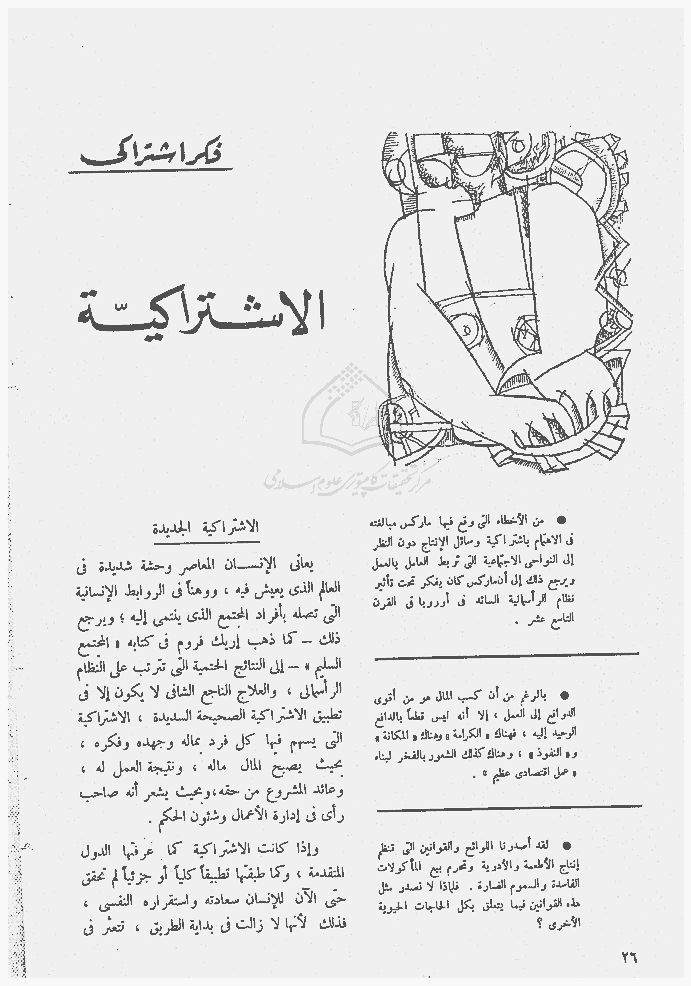 فكر اشتراكى
الاشتراكيّة
مركز تحقيقات كامپيوترى علوم اسلامى
● من الأخطاء التى وقع فيها ماركس مبالغته
فى الاهتمام باشتراكية وسائل الإنتاج دون النظر
إلى النواحى الاجتماعية التى تربط العامل بالعمل
ويرجع ذلك إلى أن ماركس كان يفكر تحت تأثير
نظام الرأسمالية السائد فى أوروبا فى القرن
التاسع عشر .
● بالرغم من أن كسب المال هو من أقوى
الدوافع إلى العمل ، إلا أنه ليس قطعاً بالدافع
الوحيد إليه ، فهناك « الكرامة » وهناك « المكانة »
و« النفوذ » ، وهناك كذلك الشعور بالفخر لبناء
« عمل اقتصادى عظيم » .
● لقد أصدرنا اللوائح والقوانين التى تنظم
إنتاج الأطعمة والأدوية وتحرم بيع المأكولات
الفاسدة والسموم الضارة . فلماذا لا نصدر مثل
هذه القوانين فيما يتعلق بكل الحاجات الحيوية
الأخرى ؟
الاشتراكية الجديدة
يعانى الإنسان المعاصر وحشة شديدة فى
العالم الذى يعيش فيه ، ووهناً فى الروابط الإنسانية
التى تصله بأفراد المجتمع الذى ينتمى إليه ؛ ويرجع
ذلك – كما ذهب إريك فروم فى كتابه « المجتمع
السليم » – إلى النتائج الحتمية التى تترتب على النظام
الرأسمالى ، والعلاج الناجع الشافى لا يكون إلا فى
تطبيق الاشتراكية الصحيحة السديدة ، الاشتراكية
التى يسهم فيها كل فرد بماله وجهده وفكره ،
بحيث يصبح المال ماله ، ونتيجة العمل له ،
وعائد المشروع من حقه، وبحيث يشعر أنه صاحب
رأى فى إدارة الأعمال وشئون الحكم .
وإذا كانت الاشتراكية كما عرفتها الدول
المتقدمة ، وكما طبقتها تطبيقاً كلياً أو جزئياً لم تحقق
حتى الآن للإنسان سعادته واستقراره النفسى ،
فذلك لأنها لا زالت فى بداية الطريق ، تتعثر فى
٢٦